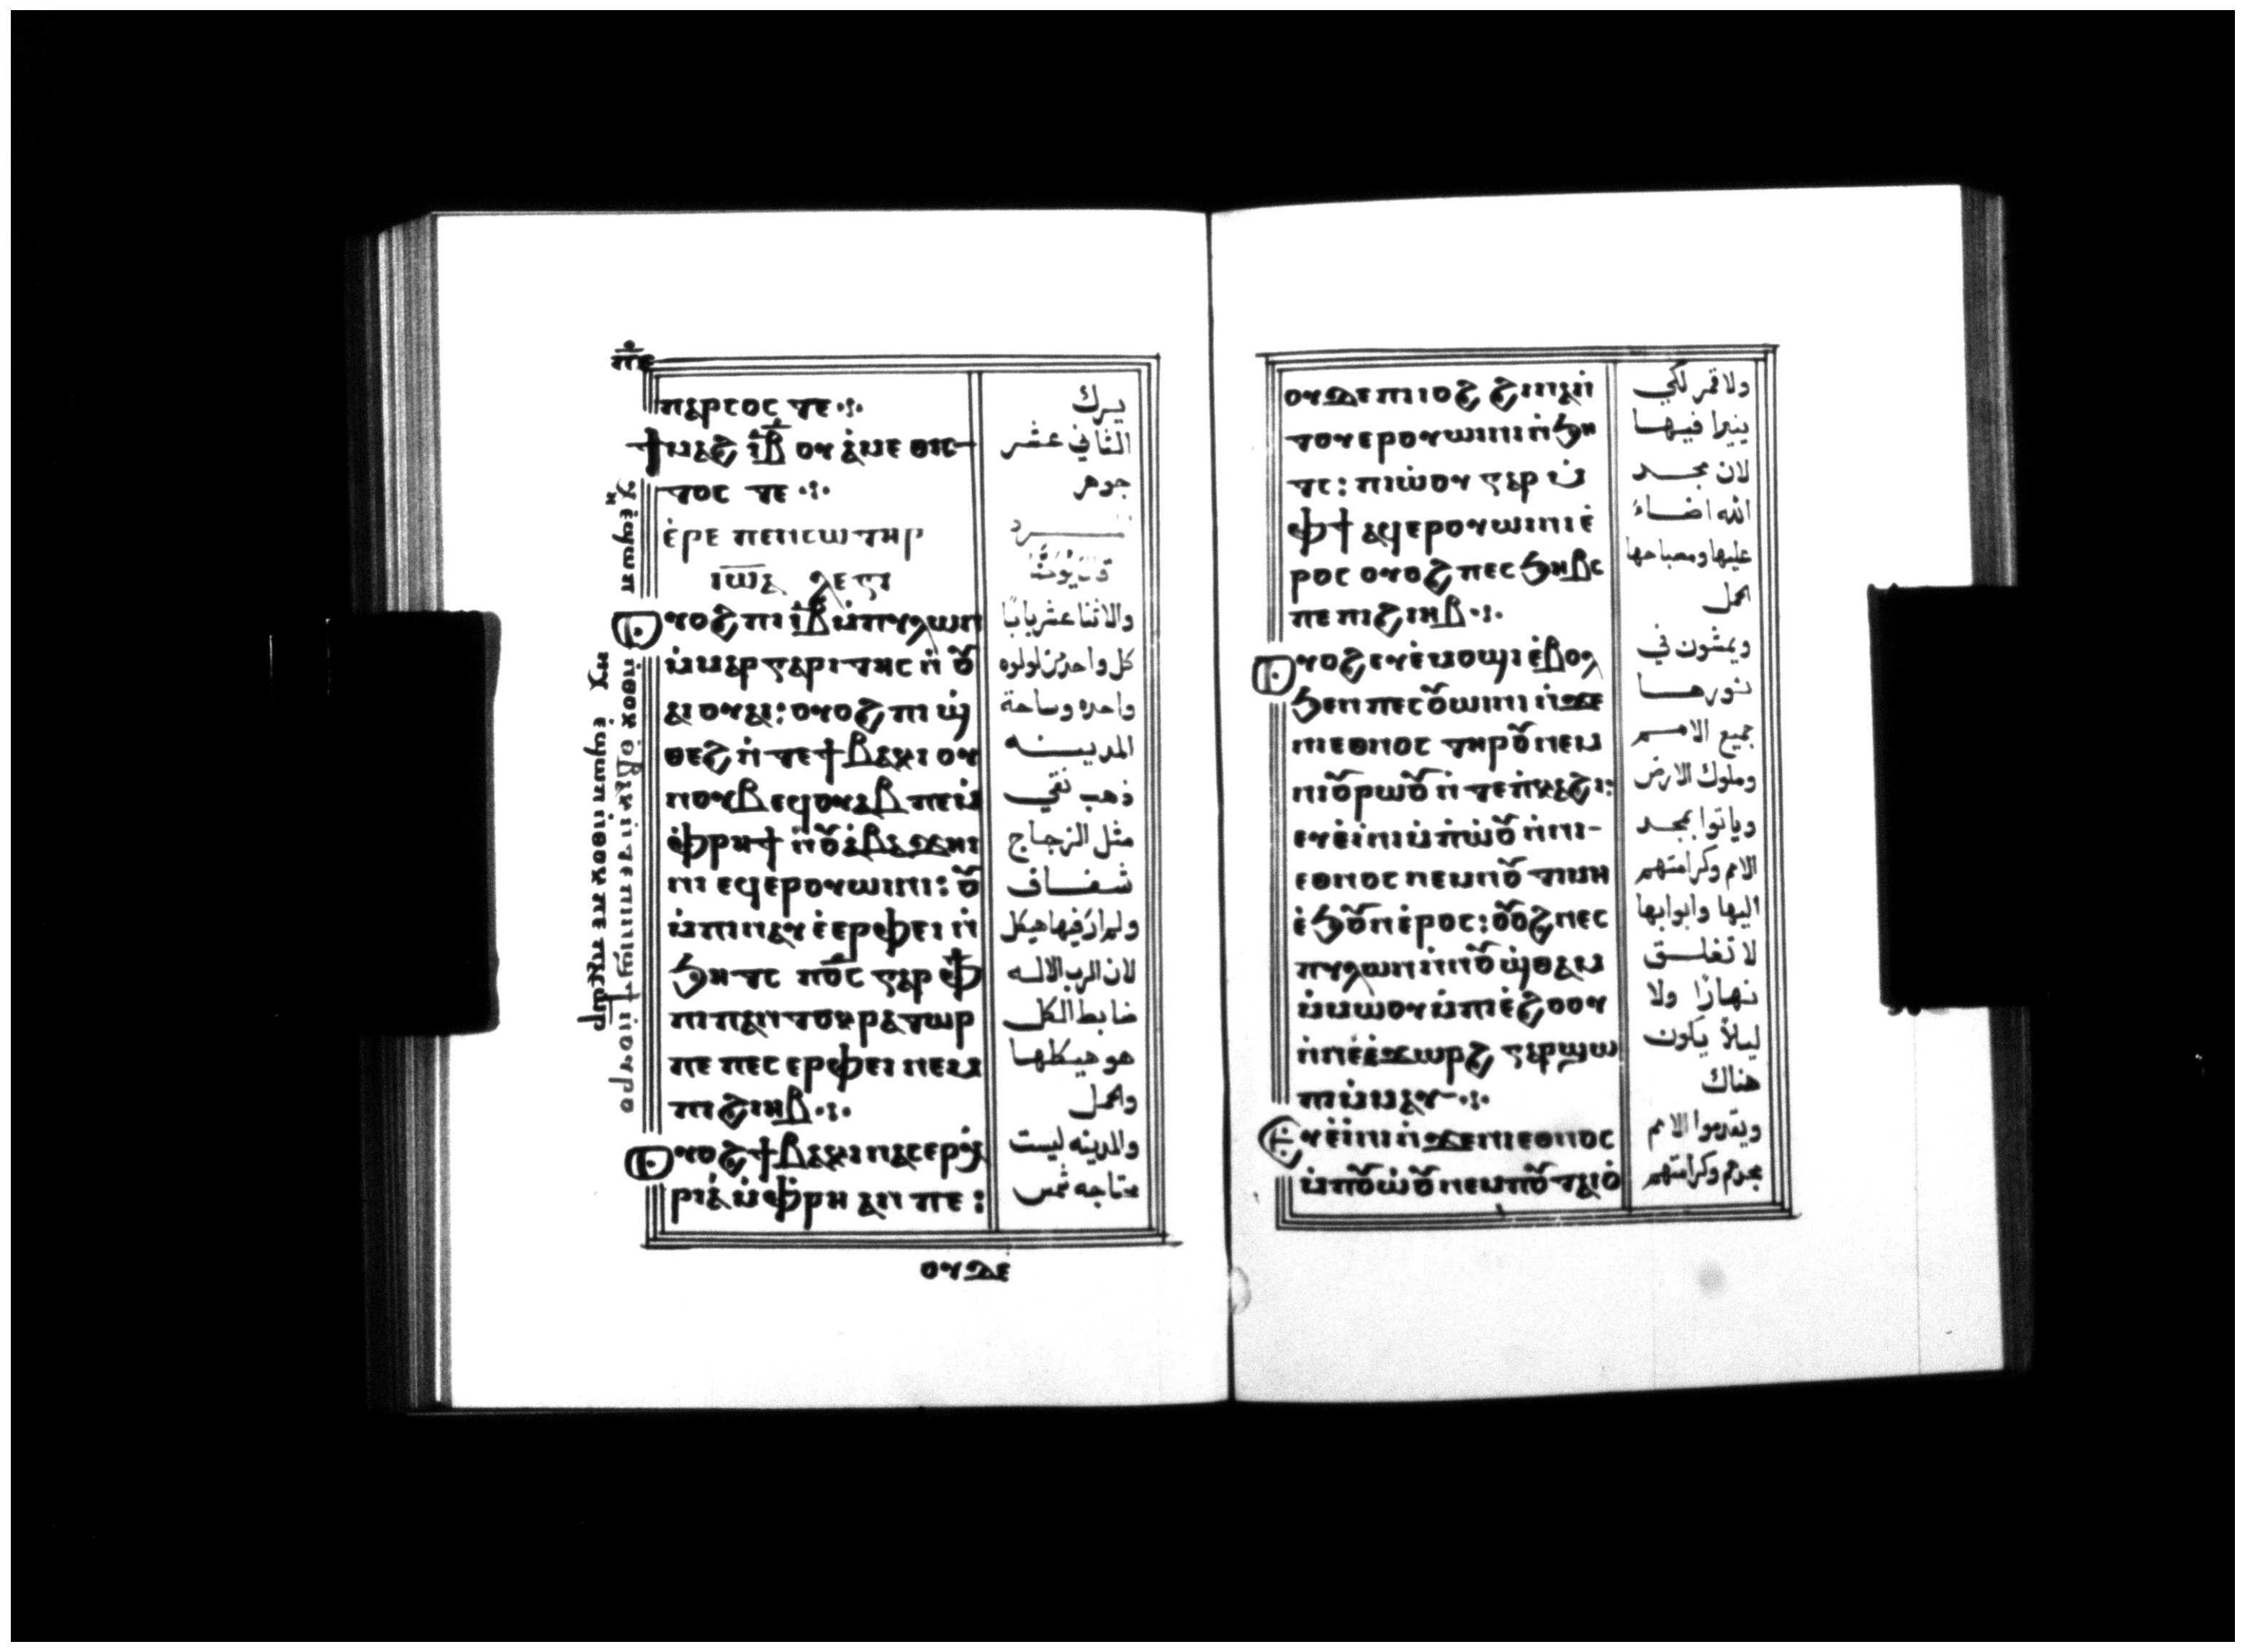 ⲡⲁⲣⲥⲟⲥ ⲧⲉ
ϯⲙⲁϩ ⲓⲃ ⲟⲩ ⲁⲙⲉⲑⲓⲥ
ⲧⲟⲥ ⲧⲉ
ⲉⲣⲉ ⲡⲉⲛⲥⲱⲧⲏⲣ
ⲟⲩⲟϩ ⲡⲓ ⲓⲃ ⲙⲡⲩⲗⲱⲛ
ⲙⲙⲁⲣⲅⲁⲣⲓⲧⲏⲥ ⲛ ⲟⲩ
ⲁⲓ ⲟⲩⲁⲓ: ⲟⲩⲟϩ ⲡⲓϣ
ⲑⲉϩ ⲛⲧⲉ ϯⲃⲁⲕⲓ ⲟⲩ
ⲛⲟⲩⲃ ⲉϥⲟⲩⲃⲁⲡⲉ
ⲙⲫⲣⲏϯ ⲛⲟⲩⲁⲃⲁϫⲏⲓ
ⲛⲓ ⲉϥⲉⲣⲟⲩⲱⲓⲛⲓ: ⲟⲩ
ⲙⲡⲓⲛⲁⲩ ⲉⲉⲣⲫⲉⲓ ⲛ
ϧⲏⲧⲥ ⲡⲟⲥ ⲅⲁⲣ ⲫϯ
ⲡⲓⲡⲁⲛⲧⲟⲕⲣⲁⲧⲱⲣ
ⲡⲉ ⲡⲉⲥⲉⲣⲫⲉⲓ ⲛⲉⲙ
ⲡⲓϩⲓⲏⲃ
ⲟⲩⲟϩ ϯⲃⲁⲕⲓ ⲛⲁⲥⲉⲣⲭ
ⲣⲓⲁ ⲙⲫⲣⲏ ⲁⲛ ⲡⲉ:
ⲟⲩϫⲉ
يرك
الثاني عشر
جوهر
والاثنا عشر بابًا
كل واحد من لولوه
واحده وساحة
المدينه
ذهب نقي
مثل الزجاج
شفاف
ولم ار فيها هيكل
لان الرب الاله
ضابط الكل
هو هيكلها
والحمل
والمدينه ليست
محتاجه شمس
ⲟⲩϫⲉ ⲡⲓⲓⲟϩ ϩⲓⲛⲁ ⲛ
ⲧⲟⲩⲉⲣⲟⲩⲱⲓⲛⲓ ⲛϧⲏ
ⲧⲥ: ⲡⲱⲟⲩ ⲅⲁⲣ ⲙ
ⲫϯ ⲁϥⲉⲣⲟⲩⲱⲓⲛⲓ ⲉ
ⲣⲟⲥ ⲟⲩⲟϩ ⲡⲉⲥϧⲏⲃⲥ
ⲡⲉ ⲡⲓϩⲓⲏⲃ
ⲟⲩⲟϩ ⲉⲩⲉⲙⲟϣⲓ ⲉⲃⲟⲗ
ϧⲉⲛ ⲡⲉⲥⲟⲩⲱⲓⲛⲓ ⲛϫⲉ
ⲛⲓⲉⲑⲛⲟⲥ ⲧⲏⲣⲟⲩ ⲛⲉⲙ
ⲛⲓⲟⲩⲣⲱⲟⲩ ⲛⲧⲉ ⲡⲕⲁϩⲓ:
ⲉⲩⲉⲓⲛⲓ ⲙⲡⲱⲟⲩ ⲛⲛⲓ
ⲉⲑⲛⲟⲥ ⲛⲉⲙ ⲡⲟⲩⲧⲁⲓⲏ
ⲉϧⲟⲩⲛ ⲉⲣⲟⲥ: ⲟⲩⲟϩ ⲛⲉⲥ
ⲡⲩⲗⲱⲛ ⲛⲛⲟⲩϣⲑⲁⲙ
ⲙⲙⲱⲟⲩ ⲙⲡⲓⲉϩⲟⲟⲩ
ⲛⲛⲉ ⲉϫⲱⲣϩ ⲅⲁⲣ ϣⲱ
ⲡⲓ ⲙⲙⲁⲩ
ⲉⲩⲉⲓⲛⲓ ⲛϫⲉ ⲛⲓⲉⲑⲛⲟⲥ
ⲙⲡⲟⲩⲱⲟⲩ ⲛⲉⲙ ⲡⲟⲩⲧⲁⲓⲟ
ولا قمر لكي
ينيرا فيها
لان مجد
الله اضاء
عليها ومصباحها
الحمل
ويمشون في
نورها
جميع الامم
وملوك الارض
وياتوا بمجد
الامم وكرامتهم
اليها وابوابها
لا تغلق
نهارًا ولا
ليلاً يكون
هناك
ويقدموا الامم
مجدهم وكرامتهم